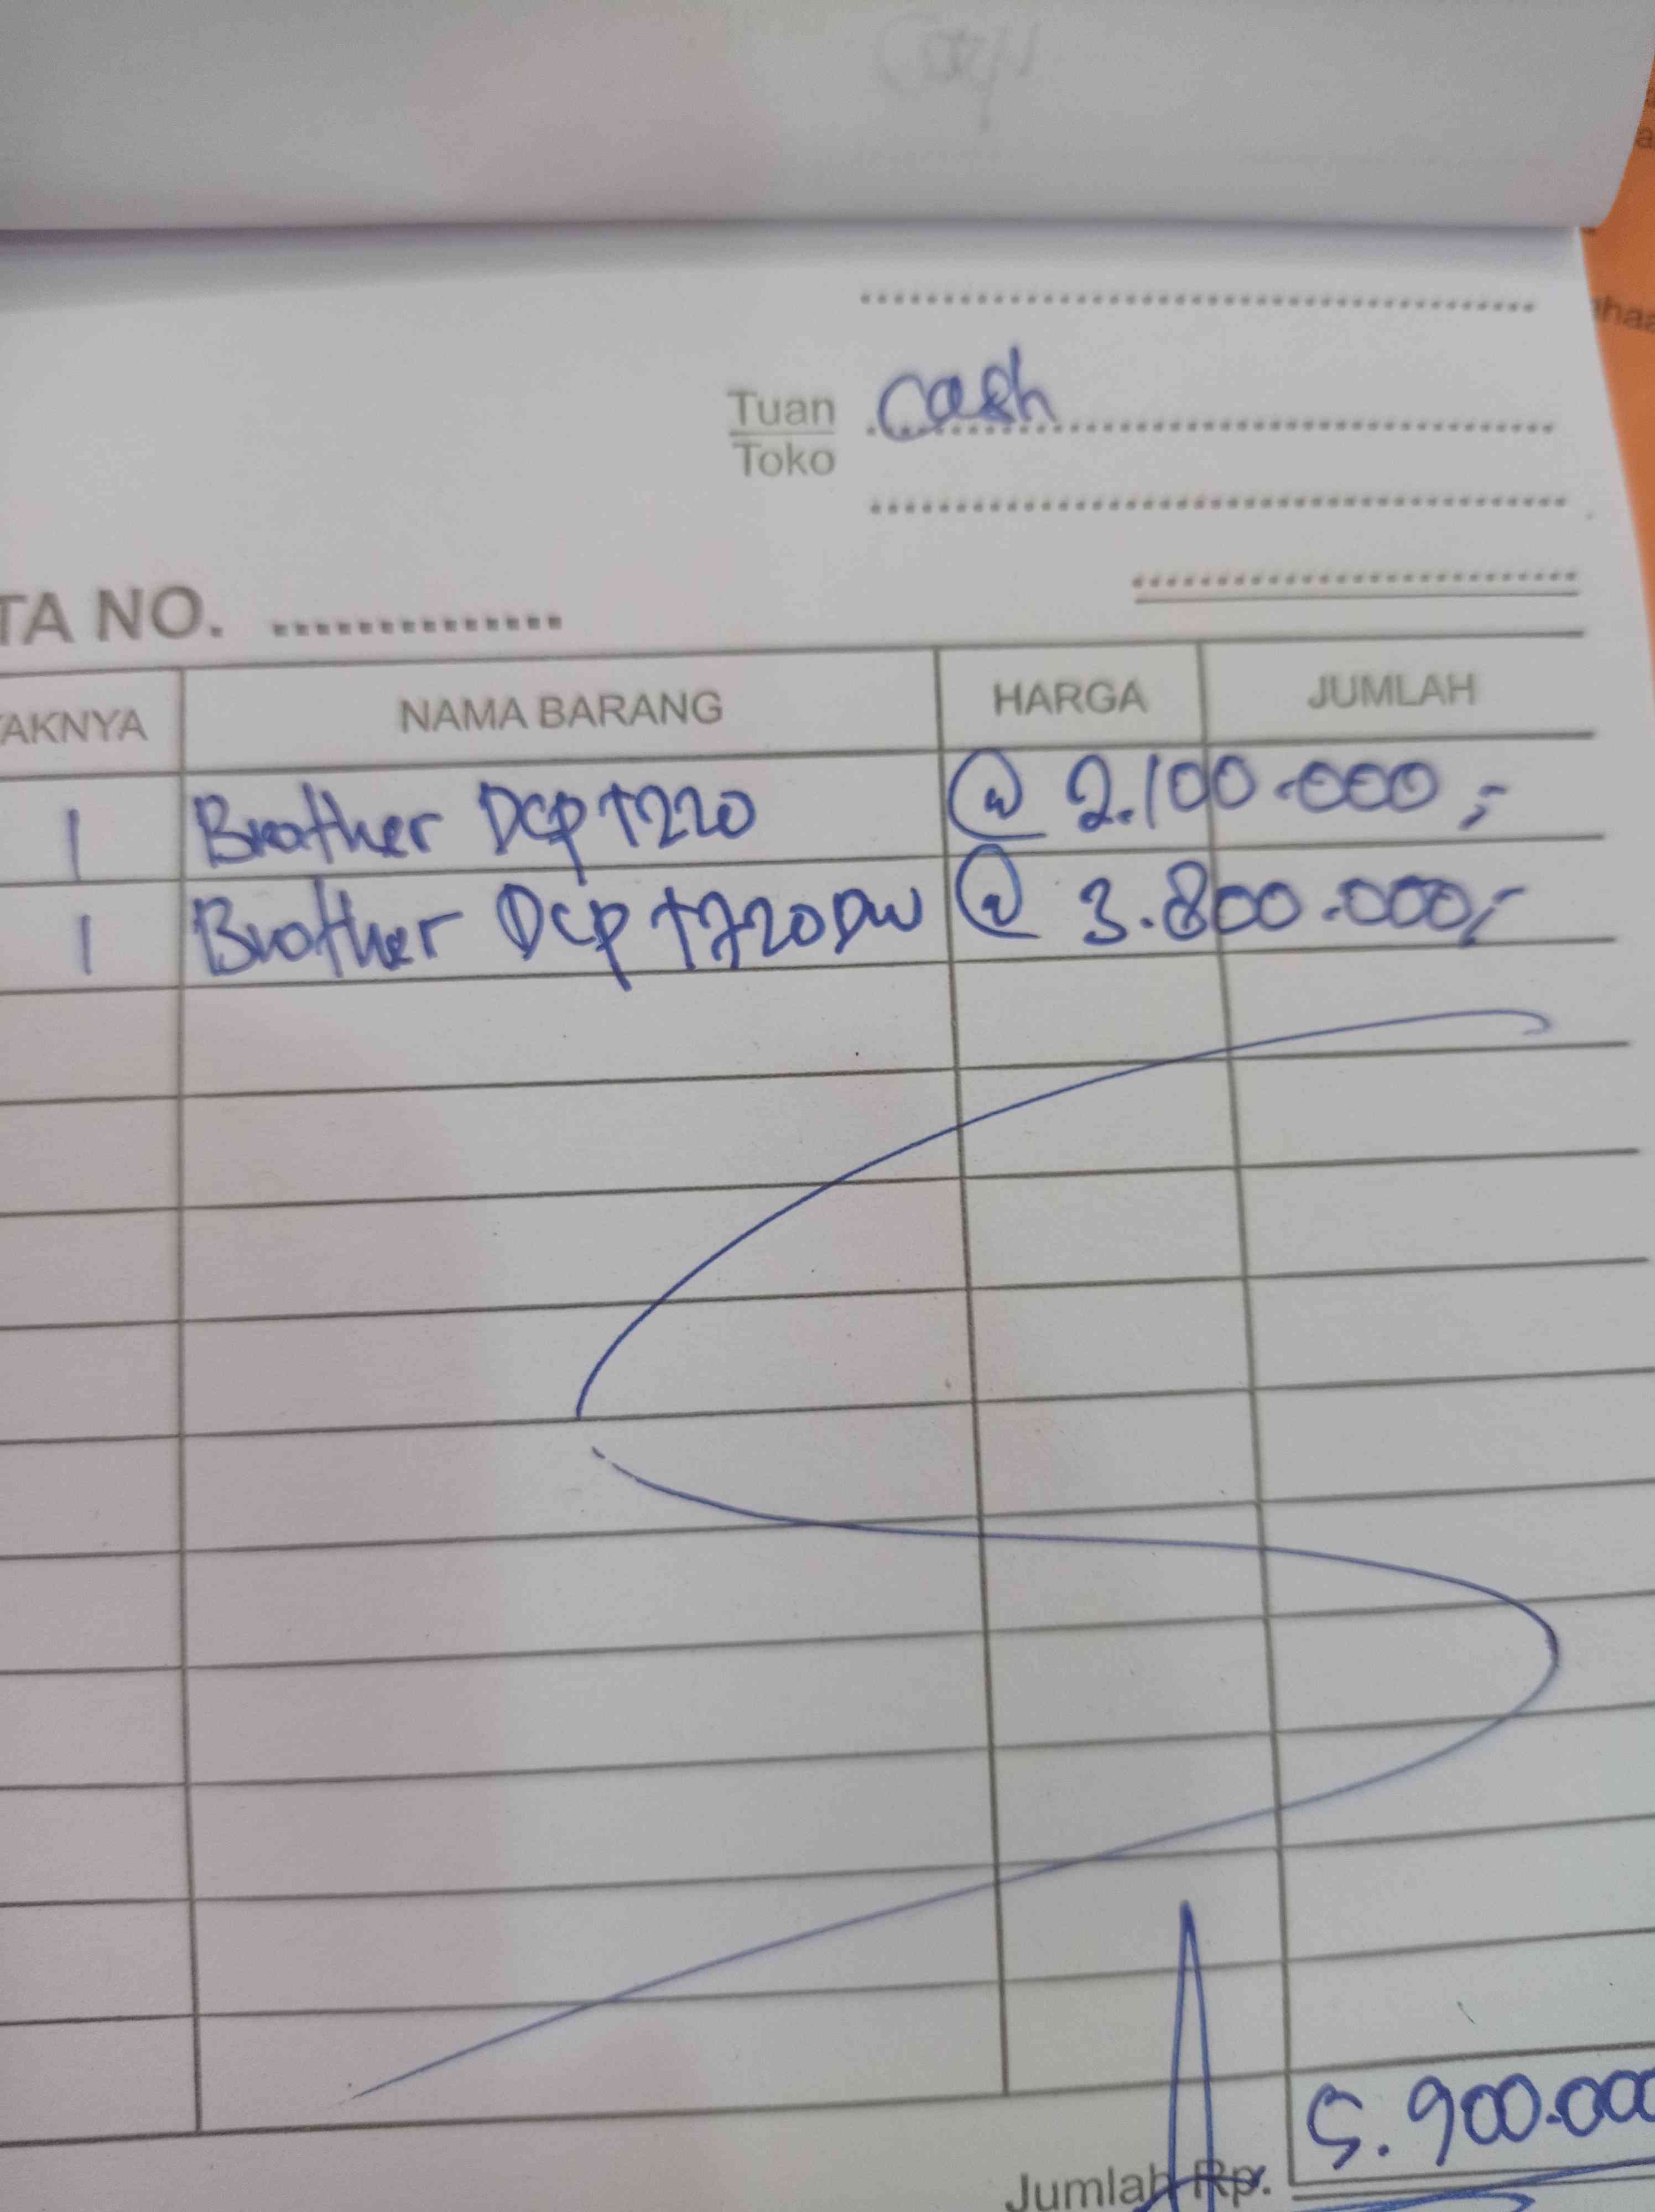 cash
Tuan
Toko
TA NO. ..............
AKNYA NAMA BARANG HARGA JUMLAH
1 Brother DCP T220 @ 2.100.000,-
1 Brother DCP T720DW @ 3.800.000,-
Jumlah Rp. 5.900.000